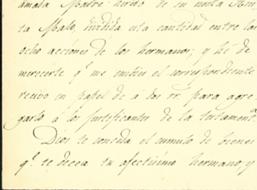 amada Madre: hecho de su nota
ta Malo, dividida esta cantidad entre los
ocho acciones de los hermanos; y hé de
merecerte q.e me envien el correspondiente
recivo en papel de á los r.s para agre-
garlo á los justificantes de la testament.a
Dios te conceda el cumulo de bienes
q.e te desea tu afectisimo hermano, y